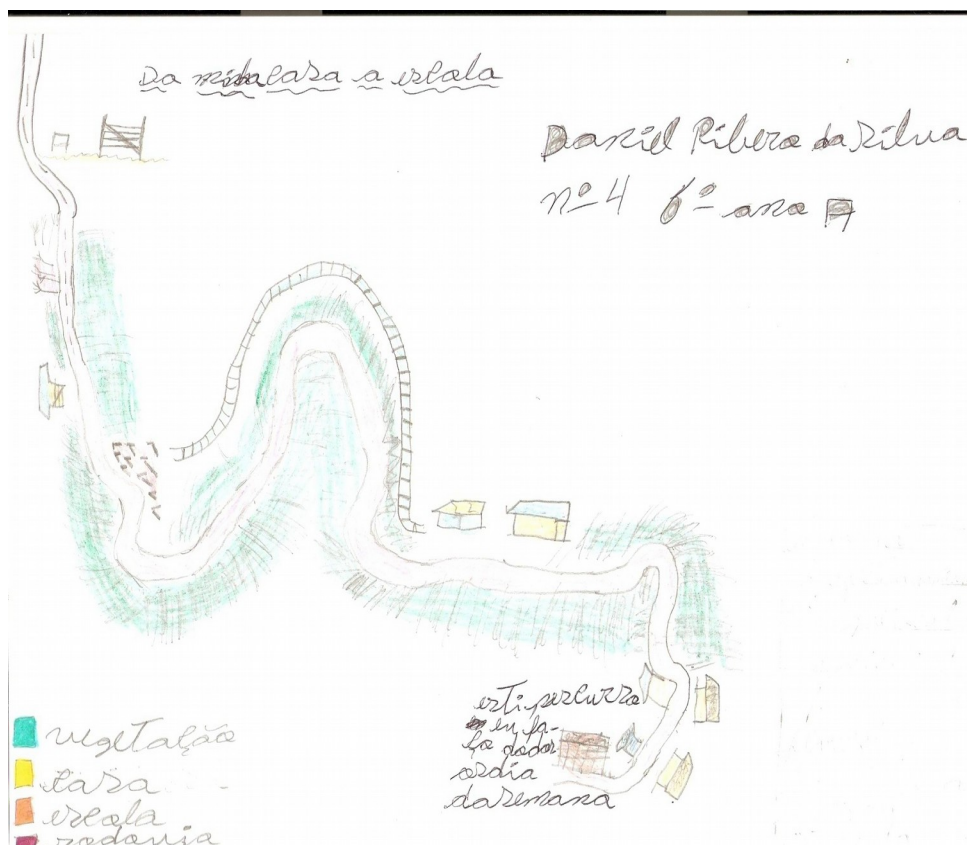 Da minha casa a escola
Daniel Ribera da Silva
nº 4 6º ano A
esti percurso
eu fa-
ço todos
os dia
da semana
vegetação
casa
escola
rodovia